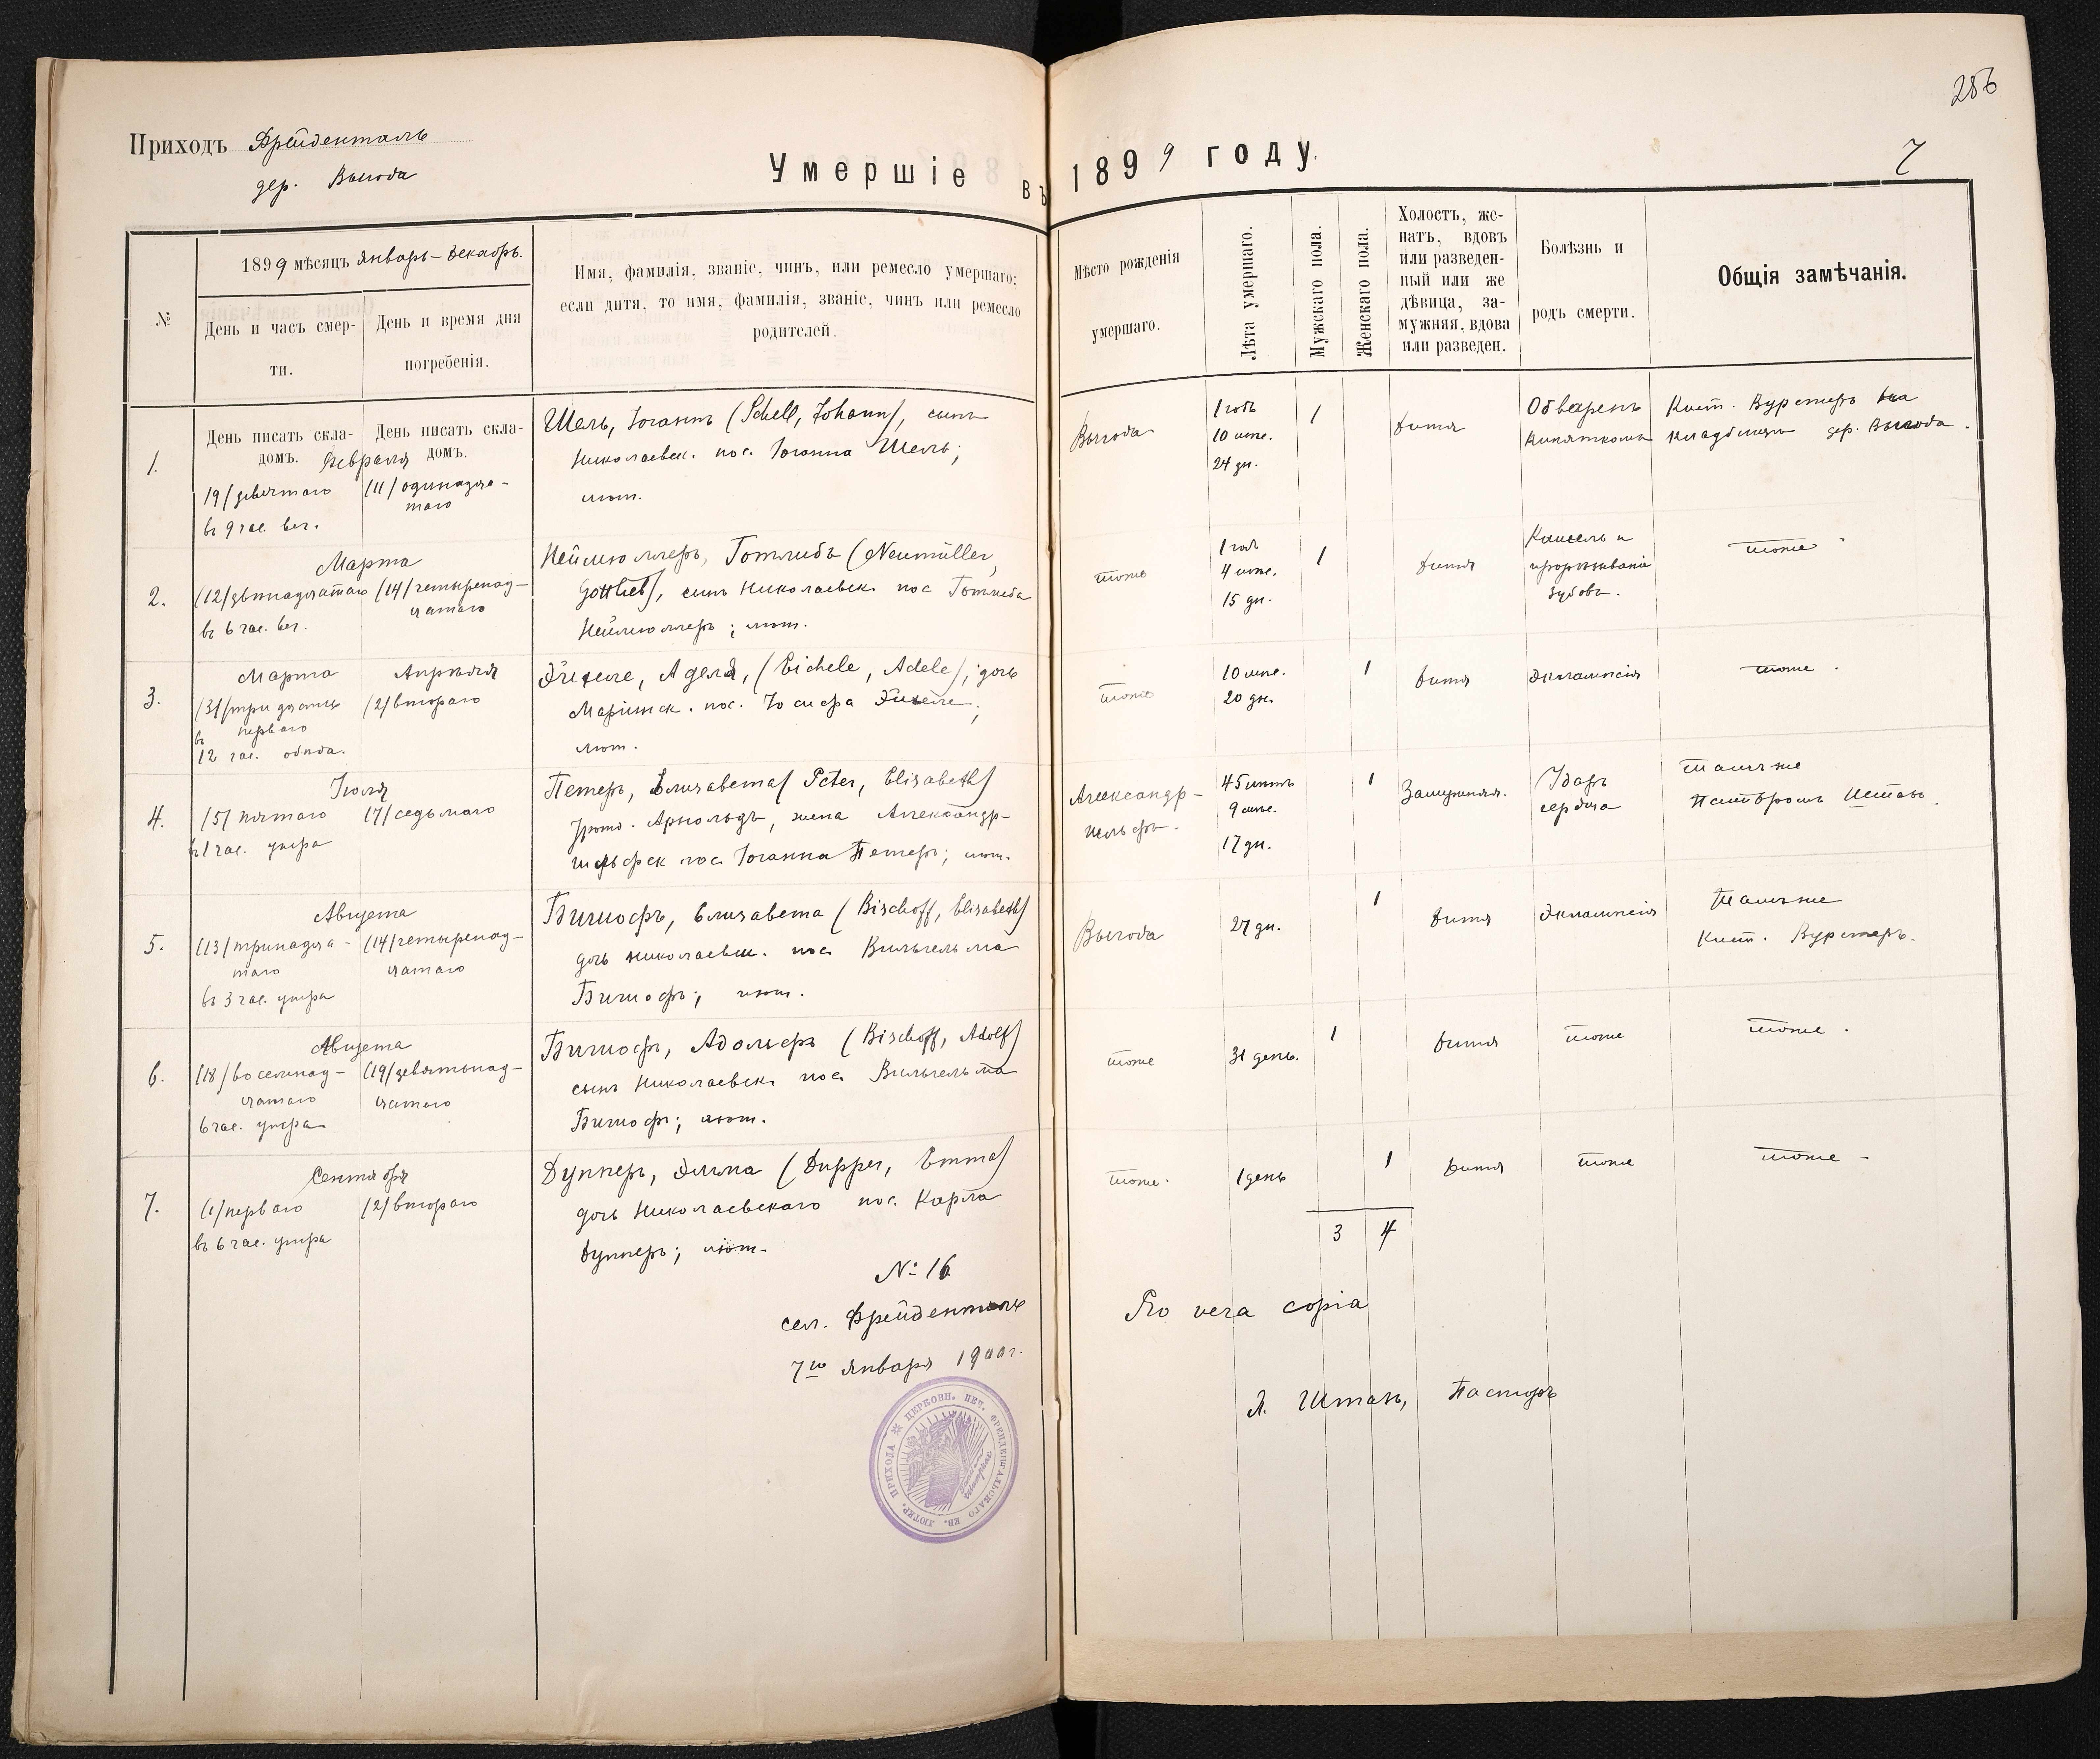 286
Приходъ Фрейденталь
дер. Выгода
Умершіе въ 1899 году.
7
№
1899 мѣсяцъ Январь – Декабрь.
День и часъ смер-
ти.
День и время дня
погребенія.
Имя, фамилія, званіе, чинъ, или ремесло умершаго;
если дитя, то имя, фамилія, званіе, чинъ или ремесло
родителей.
Мѣсто рожденія
умершаго.
Лѣта умершаго.
Мужскаго пола.
Женскаго пола.
Холостъ, же-
натъ, вдовъ
или разведен-
ный или же
дѣвица, за-
мужняя, вдова
или разведен.
Болѣзнь и
родъ смерти.
Общія замѣчанія.
День писать скла-
домъ.
День писать скла-
домъ.
1.
Февраля
/9/ девятаго
въ 9 час. веч.
/11/ одинадца-
таго
Шель, Іоганнъ (Schell, Johann), сынъ
Николаевск. пос. Іоганна Шель;
лют.
Выгода
1 годъ
10 мѣс.
24 дн.
1
дитя
Обваренъ
кипяткомъ
Кист. Вурстеръ на
кладбищѣ дер. Выгода.
2.
Марта
/12/ двѣнадцатаго
въ 6 час. веч.
/14/ четырнад-
цатаго
Неймюллеръ, Готлибъ (Neumüller,
Gottlieb), сынъ Николаевск. пос. Готлиба
Неймюллеръ; лют.
тоже
1 годъ
4 мѣс.
15 дн.
1
дитя
Кашель и
прорѣзываніе
зубовъ.
тоже
3.
Марта
/31/ тридцать
перваго
въ
12 час. обѣда.
Апрѣля
/2/ втораго
Эйхеле, Аделя, (Eichele, Adele); дочь
Маріинск. пос. Іосифа Эйхеле;
лют.
тоже
10 мѣс.
20 дн.
1
дитя
Эклампсія
тоже.
4.
Іюля
/5/ пятаго
въ 1 час. утра
/7/ седьмого
Петеръ, Елизавета (Peter, Elisabeth)
урожд. Арнольдъ, жена Александр-
гильфск. пос. Іоганна Петеръ; лют.
Александр-
гильфъ.
45 лѣтъ
9 мѣс.
17 дн.
1
Замужняя.
Ударъ
сердца
Тамъ же
Пасторомъ Шталь
5.
Августа
/13/ тринадца-
таго
въ 3 час. утра
/14/ четырнад-
цатаго
Бишофъ, Елизавета (Bischoff, Elisabeth)
дочь Николаевск. пос. Вильгельма
Бишофъ; лют.
Выгода
27 дн.
1
дитя
Эклампсія
Тамъ же
Кист. Вурстеръ.
6.
Августа
/18/ восемнад-
цатаго
6 час. утра
/19/ девятнад-
цатаго
Бишофъ, Адольфъ (Bischoff, Adolf)
сынъ Николаевск. пос. Вильгельма
Бишофъ; лют.
тоже
31 день.
1
дитя
тоже
тоже.
7.
Сентября
/1/ перваго
въ 6 час. утра
/2/ втораго
Дупперъ, Эмма (Dupper, Emma)
дочь Николаевскаго пос. Карла
Дупперъ; лют.
тоже.
1 день
1
дитя
тоже
тоже
3 4
№ 16
сел. Фрейденталь
7го Января 1900 г.
Pro vera copia
Л. Шталь, Пасторъ
ЦЕРКОВН. ПЕЧ. ФРЕЙДЕНТАЛЬСКАГО ЕВ. ЛЮТЕР. ПРИХОДА